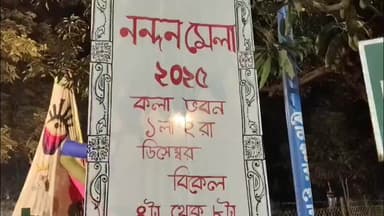 নন্দন মেলা
২০২৫
কলা ভবন
১লা ২রা
ডিসেম্বর
বিকেল
৪টা থেকে ৮টা